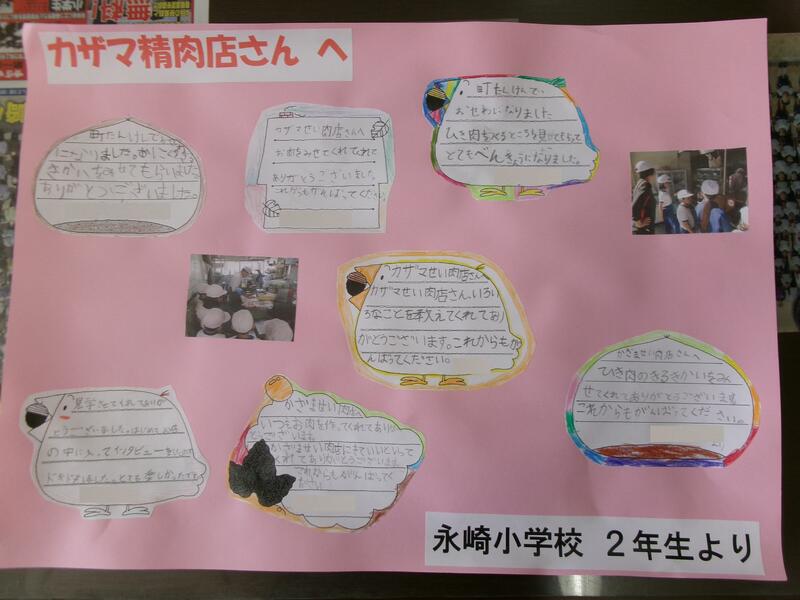 カザマ精肉店さん へ
町たんけんで
おせわになりました
ひき肉を作るところを見せてもらって
とてもべんきょうになりました。
カザマせい肉店さんへ
お肉をみせてくれてれて
ありがとうございました。
これからもがんばってください。
町たんけんでお
ありがとうございました。
カザマせい肉店さんへ
カザマせい肉店さん、いろい
ろなことを教えてくれてあり
がとうございます。これからもが
んばってください。
かざませい肉店さんへ
ひき肉のきるきかいをみ
せてくれてありがとうございます
これからもがんばってください。
見学させてくれてありが
とうございました。はじめてお店
の中に入ってインタビューを
ドキドキしました。とても楽しかったです
かざませい肉店へ
いつもお肉を作ってくれてありが
とうございます。
かざませい肉店にきていいといって
くれてありがとうございます。
これからもがんばってく
ださい。
永崎小学校 2年生より